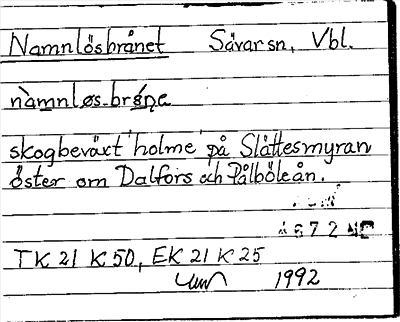 Namnlösbrånet Sävar sn, Vbl.
nàmnløs-bró̀ne
skogbeväxt 'holme' på Slåttesmyran
öster om Dalfors och Pålböleån.
TK 21 K 50, EK 21 K 25
1992